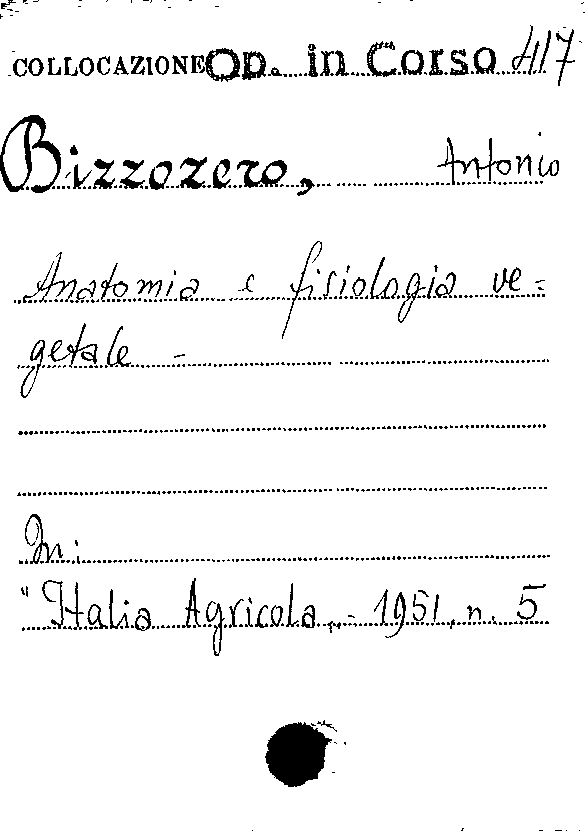 COLLOCAZIONE Op. in Corso 417
Bizzozero, Antonio
Anatomia e fisiologia ve=
getale -
In:
"Italia Agricola,, - 1951, n. 5